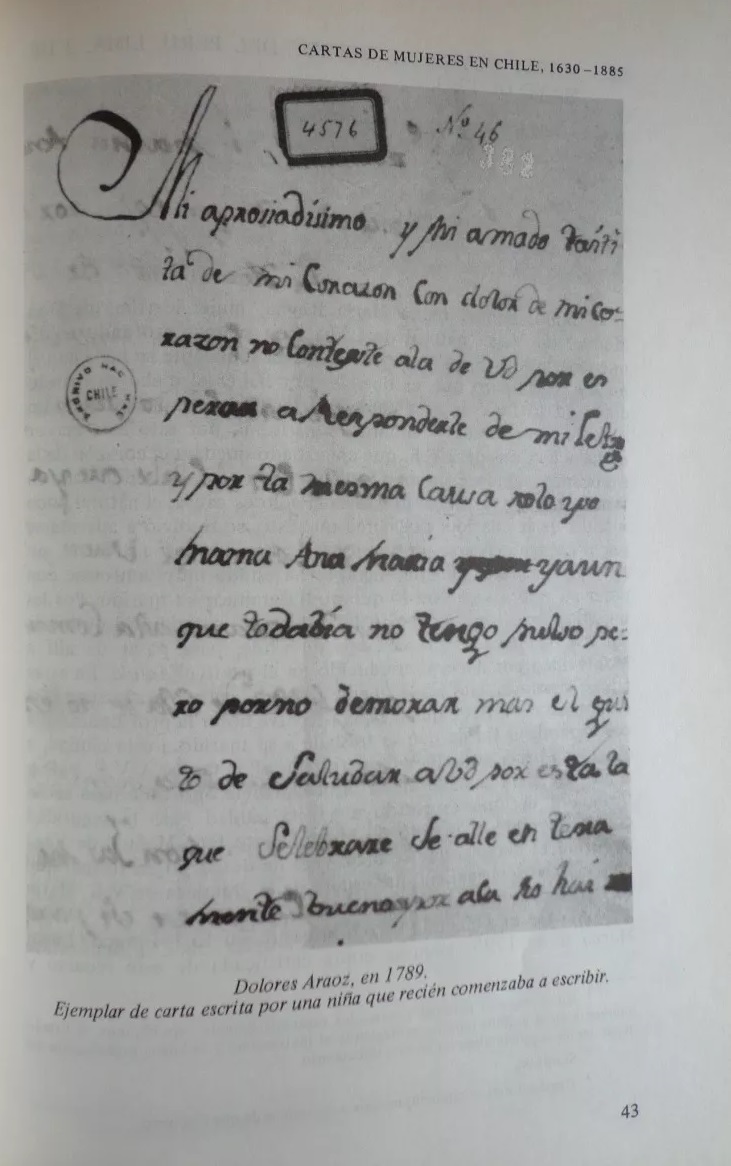 CARTAS DE MUJERES EN CHILE, 1630–1885
4576
Nº 46
382
Mi apresiadísimo y Mi amado taiti
ta de mi Conazon Con dolor de mi co-
razon no Conteste ala de Vd por es
peran a Responderle de mi Letra
y por la mesma Causa solo yso
mama Ana Maria yaun
que todabía no tengo pulso pe-
ro porno demoran mas el gus
to de Saludan a Vd por esta la
que Selebrare Se alle en tera
mente bueno por
ARCHIVO NAC
CHILE
Dolores Araoz, en 1789.
Ejemplar de carta escrita por una niña que recién comenzaba a escribir.
43